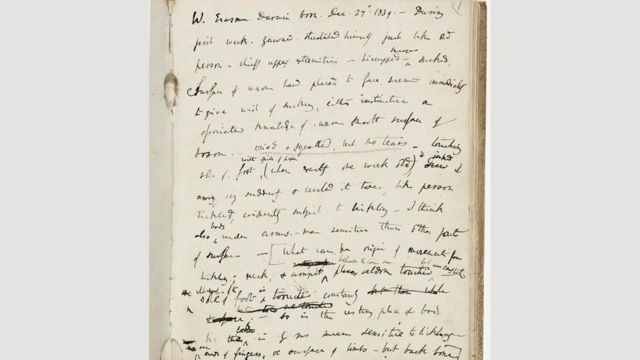 W. Erasmus. Darwin born. Dec. 27th 1839. — During (1
first week. yawned, stretched himself just like old
person — chiefly upper extremities — hiccupped — sneezes sucked,
Surface of warm hand placed to face, seemed immediately
to give wish of sucking, either instinctive or
associated knowledge of warm smooth surface of
bosom. — cried & squalled, but no tears — touching
sole of foot with spill of paper, (when exactly one week old), it jerked it
away very suddenly & curled its toes, like person
tickled, evidently subject to tickling — I think
also body under arms — more sensitive than other parts
of surface — [What can be origin of movement from
tickling; neck, & armpit between the toes are places seldom touched
sole of foot is constantly
so is the resting place of body
of fingers, or surface of limbs — but back bone